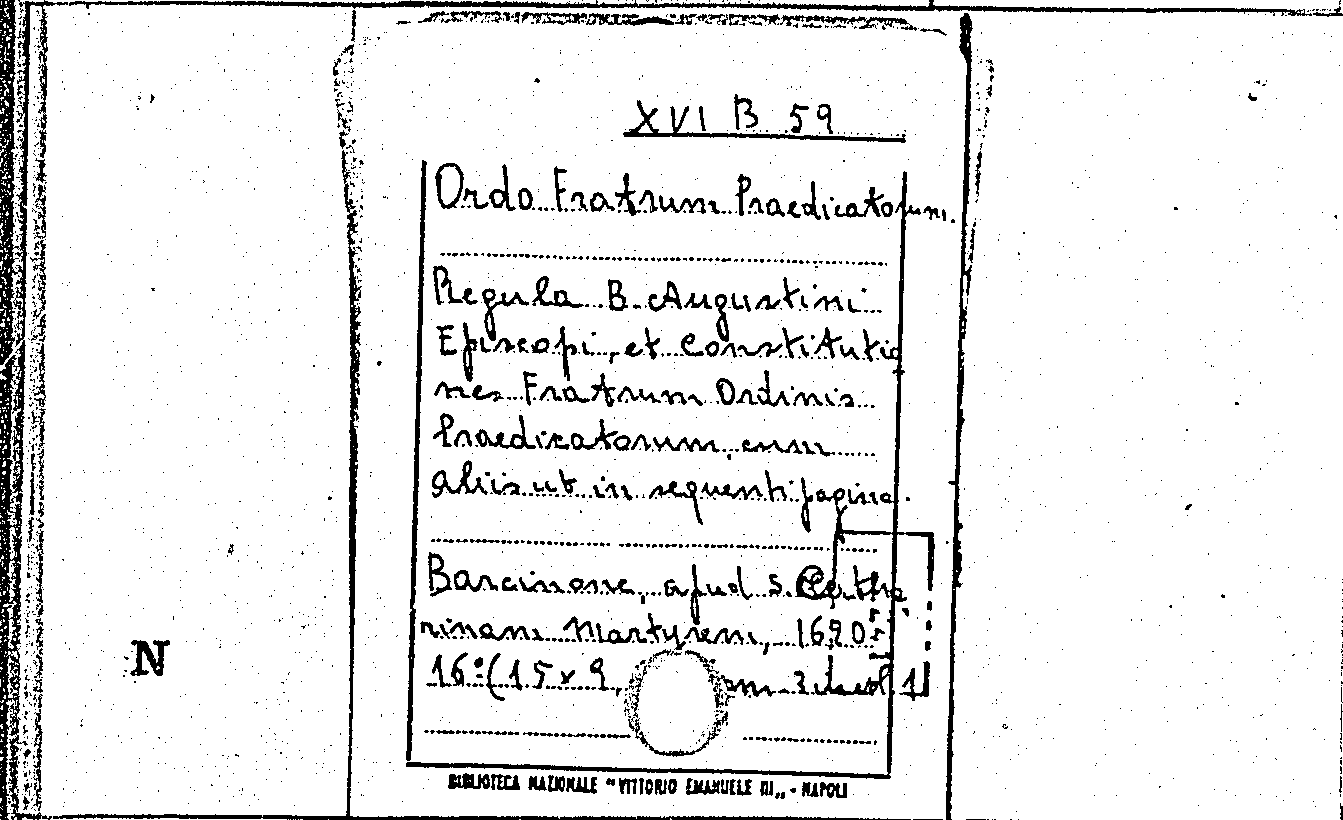 XVI B 59
Ordo Fratrum Praedicatorum.
Regula B. Augustini
Episcopi, et Constitutio
nes Fratrum Ordinis
Praedicatorum, cum
aliis ut in sequenti pagina.
Barcinone, apud S.
rinam Martyrem, 1690
16° (15 x 9,
N
BIBLIOTECA NAZIONALE "VITTORIO EMANUELE III" - NAPOLI